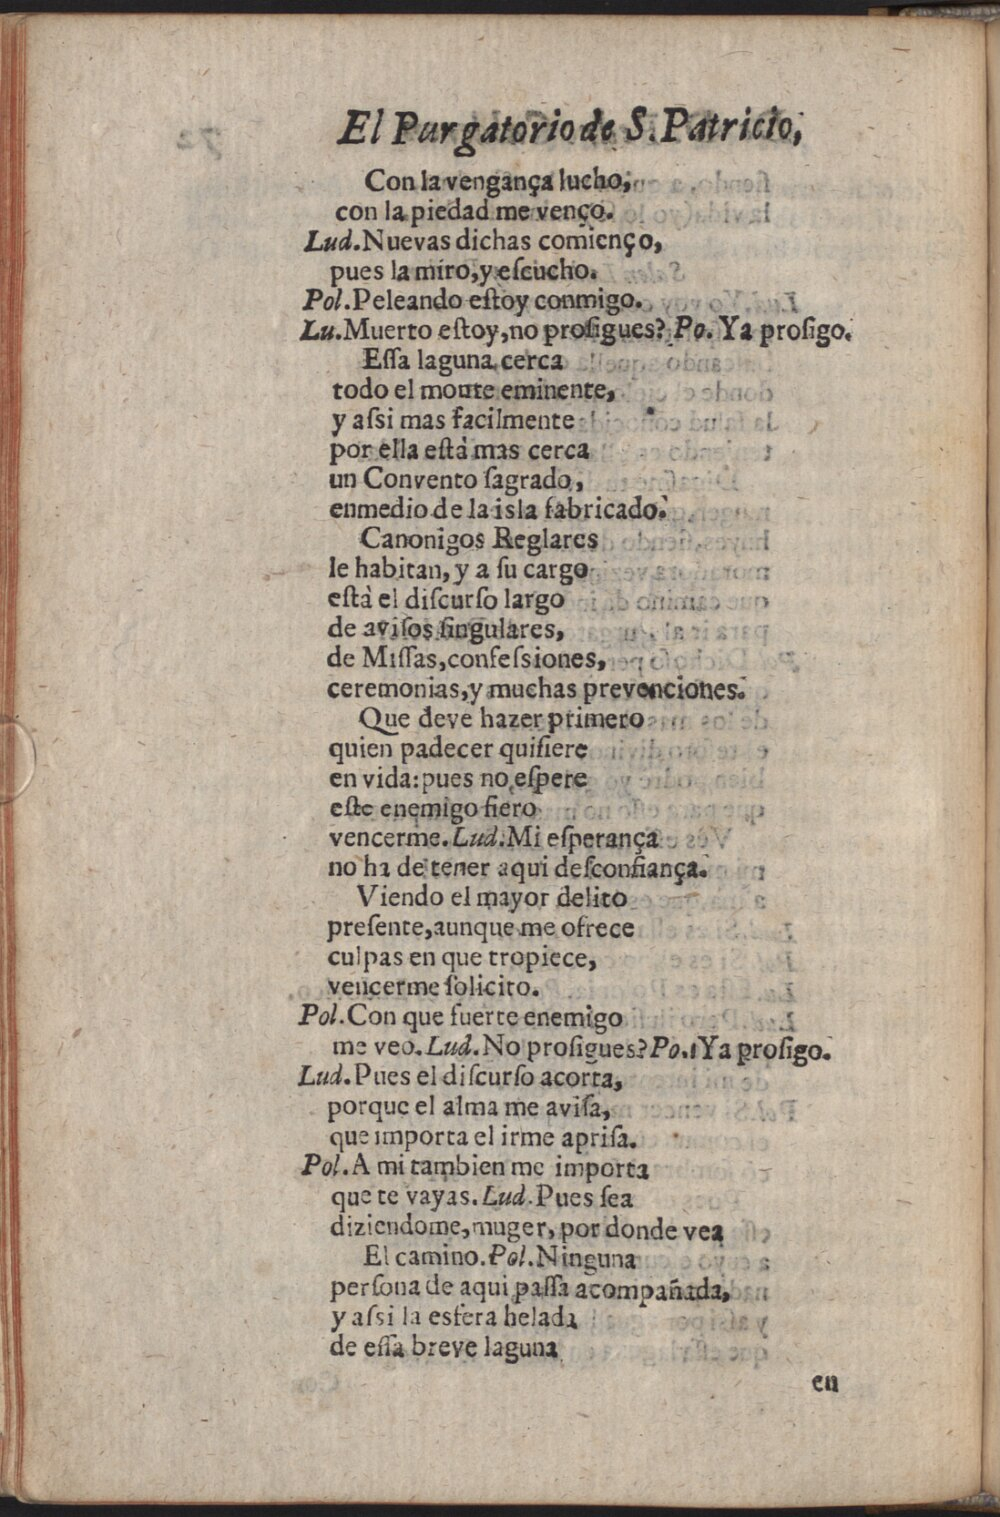 El Purgatorio de S. Patricio,
Con la vengança lucho,
con la piedad me venço.
Lud. Nuevas dichas comienço,
pues la miro, y eſcucho.
Pol. Peleando eſtoy conmigo.
Lu. Muerto eſtoy, no proſigues? Po. Ya proſigo.
Eſſa laguna cerca
todo el monte eminente,
y aſsi mas facilmente
por ella eſtà mas cerca
un Convento ſagrado,
enmedio de la isla fabricado.
Canonigos Reglares
le habitan, y a ſu cargo
eſtà el diſcurſo largo
de aviſos ſingulares,
de Miſſas, confeſsiones,
ceremonias, y muchas prevenciones.
Que deve hazer primero
quien padecer quiſiere
en vida: pues no eſpere
eſte enemigo fiero
vencerme. Lud. Mi eſperança
no ha de tener aqui deſconfiança.
Viendo el mayor delito
preſente, aunque me ofrece
culpas en que tropiece,
vencerme ſolicito.
Pol. Con que fuerte enemigo
me veo. Lud. No proſigues? Po. Ya proſigo.
Lud. Pues el diſcurſo acorta,
porque el alma me aviſa,
que importa el irme apriſa.
Pol. A mi tambien me importa
que te vayas. Lud. Pues ſea
diziendome, muger, por donde vea
El camino. Pol. Ninguna
perſona de aqui paſſa acompañada,
y aſsi la esfera helada
de eſſa breve laguna
en